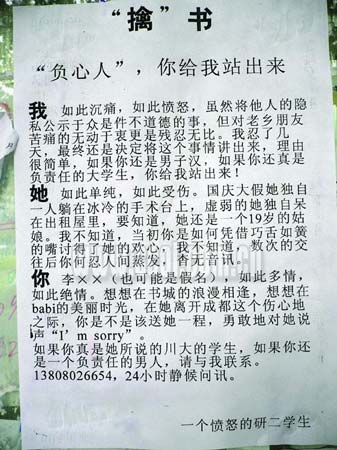 “擒”书
“负心人”，你给我站出来
我 如此沉痛，如此愤怒，虽然将他人的隐
私公示于众是件不道德的事，但对老乡朋友
苦痛的无动于衷更是残忍无比。我忍了几
天，最终还是决定将这个事情讲出来，理由
很简单，如果你还是男子汉，如果你还真是
负责任的大学生，你给我站出来！
她 如此单纯，如此受伤。国庆大假她独自
一人躺在冰冷的手术台上，虚弱的她独自呆
在出租屋里，要知道，她还是一个19岁的姑
娘。我不知道，当初你是如何凭借巧舌如簧
的嘴讨得了她的欢心，我不知道，数次的交
往后你何忍人间蒸发，杳无音讯。
你 李××（也可能是假名），如此多情，
如此绝情。想想在书城的浪漫相逢，想想在
babi的美丽时光，在她离开成都这个伤心地
之际，你是不是该送她一程，勇敢地对她说
声“I'm sorry”。
如果你真是她所说的川大的学生，如果你还
是一个负责任的男人，请与我联系。
13808026654，24小时静候问讯。
一个愤怒的研二学生